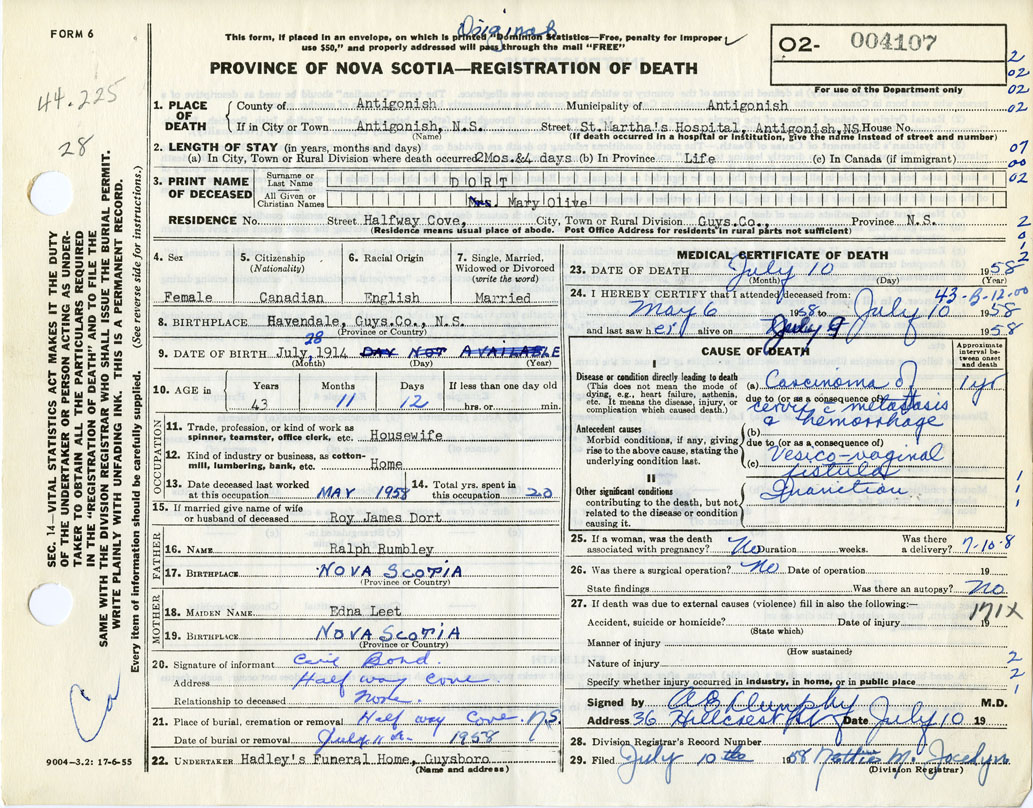 FORM 6
Original
This form, if placed in an envelope, on which is printed "Dominion Statistics—Free, penalty for improper
use $50," and properly addressed will pass through the mail "FREE"
02- 004107
PROVINCE OF NOVA SCOTIA—REGISTRATION OF DEATH
For use of the Department only
44.225
28
2
02
02
02
07
00
02
2
0
1
2
1. PLACE OF DEATH
County of Antigonish Municipality of Antigonish
If in City or Town Antigonish, N.S. Street St.Martha's Hospital, Antigonish,NS. House No.
(Name) (If death occurred in a hospital or institution, give the name instead of street and number)
2. LENGTH OF STAY (in years, months and days)
(a) In City, Town or Rural Division where death occurred 2Mos.&4 days (b) In Province Life (c) In Canada (if immigrant)
3. PRINT NAME OF DECEASED
Surname or Last Name DORT
All Given or Christian Names Mrs. Mary Olive
RESIDENCE No. Street Halfway Cove, City, Town or Rural Division Guys.Co., Province N.S.
(Residence means usual place of abode. Post Office Address for residents in rural parts not sufficient)
4. Sex
Female
5. Citizenship (Nationality)
Canadian
6. Racial Origin
English
7. Single, Married, Widowed or Divorced (write the word)
Married
8. BIRTHPLACE Havendale, Guys.Co., N.S.
(Province or Country)
28
9. DATE OF BIRTH July, 1914 DAY NOT AVAILABLE
(Month) (Day) (Year)
10. AGE in Years Months Days If less than one day old
43 11 12 hrs. or min.
OCCUPATION
11. Trade, profession, or kind of work as spinner, teamster, office clerk, etc. Housewife
12. Kind of industry or business, as cotton-mill, lumbering, bank, etc. Home
13. Date deceased last worked at this occupation MAY 1958
14. Total yrs. spent in this occupation 20
15. If married give name of wife or husband of deceased Roy James Dort
FATHER
16. NAME Ralph Rumbley
17. BIRTHPLACE NOVA SCOTIA
(Province or Country)
MOTHER
18. MAIDEN NAME Edna Leet
19. BIRTHPLACE NOVA SCOTIA
(Province or Country)
20. Signature of informant Bond
Address Half way Cove
Relationship to deceased None.
21. Place of burial, cremation or removal Half way Cove. N.S.
Date of burial or removal July 11th 1958
22. UNDERTAKER Hadley's Funeral Home, Guysboro
(Name and address)
MEDICAL CERTIFICATE OF DEATH
23. DATE OF DEATH July 10 1958
(Month) (Day) (Year)
43-B-12.00
24. I HEREBY CERTIFY that I attended deceased from:
May 6 1958 to July 10 1958
and last saw her alive on July 9 1958
CAUSE OF DEATH
Approximate interval between onset and death
I
Disease or condition directly leading to death
(This does not mean the mode of dying, e.g., heart failure, asthenia, etc. It means the disease, injury, or complication which caused death.)
(a) Carcinoma of 1 yr
due to (or as a consequence of)
cervix c metastasis
& hemorrhage
Antecedent causes
Morbid conditions, if any, giving rise to the above cause, stating the underlying condition last.
(b)
due to (or as a consequence of)
(c) Vesico-vaginal
fistula
II
Other significant conditions
contributing to the death, but not related to the disease or condition causing it.
Inanition
1
1
1
25. If a woman, was the death associated with pregnancy? No Duration weeks. Was there a delivery? 7-10-8
26. Was there a surgical operation? No Date of operation 19
State findings Was there an autopsy? No
27. If death was due to external causes (violence) fill in also the following:—
171X
Accident, suicide or homicide? Date of injury 19
(State which)
Manner of injury
(How sustained)
Nature of injury
Specify whether injury occurred in industry, in home, or in public place
2
2
1
Signed by M.D.
Address 36 Hillcrest St Date July 10 19
28. Division Registrar's Record Number
29. Filed July 10th 1958 M. Jocelyn
(Division Registrar)
9004—3.2: 17-6-55
SEC. 14—VITAL STATISTICS ACT MAKES IT THE DUTY
OF THE UNDERTAKER OR PERSON ACTING AS UNDER-
TAKER TO OBTAIN ALL THE PARTICULARS REQUIRED
IN THE "REGISTRATION OF DEATH" AND TO FILE THE
SAME WITH THE DIVISION REGISTRAR WHO SHALL ISSUE THE BURIAL PERMIT.
WRITE PLAINLY WITH UNFADING INK. THIS IS A PERMANENT RECORD.
Every item of information should be carefully supplied. (See reverse side for instructions.)